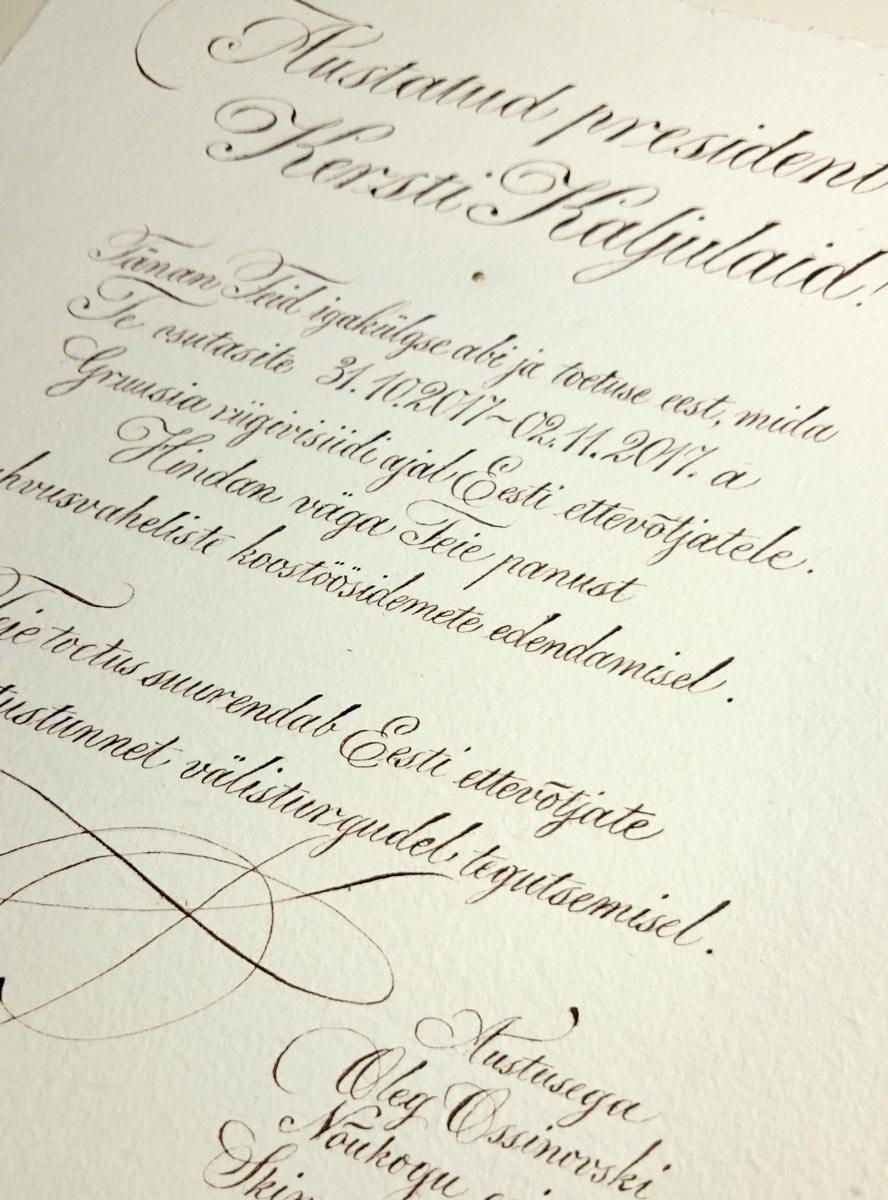 Austatud president
Kersti Kaljulaid!
Tänan Teid igakülgse abi ja toetuse eest, mida
Te osutasite 31.10.2017~02.11.2017. a
Gruusia riigivisiidi ajal Eesti ettevõtjatele.
Hindan väga Teie panust
hvusvaheliste koostöösidemete edendamisel.
eie toetus suurendab Eesti ettevõtjate
tustunnet välisturgudel tegutsemisel.
Austusega
Oleg Ossinovski
Nõukogu
Skin